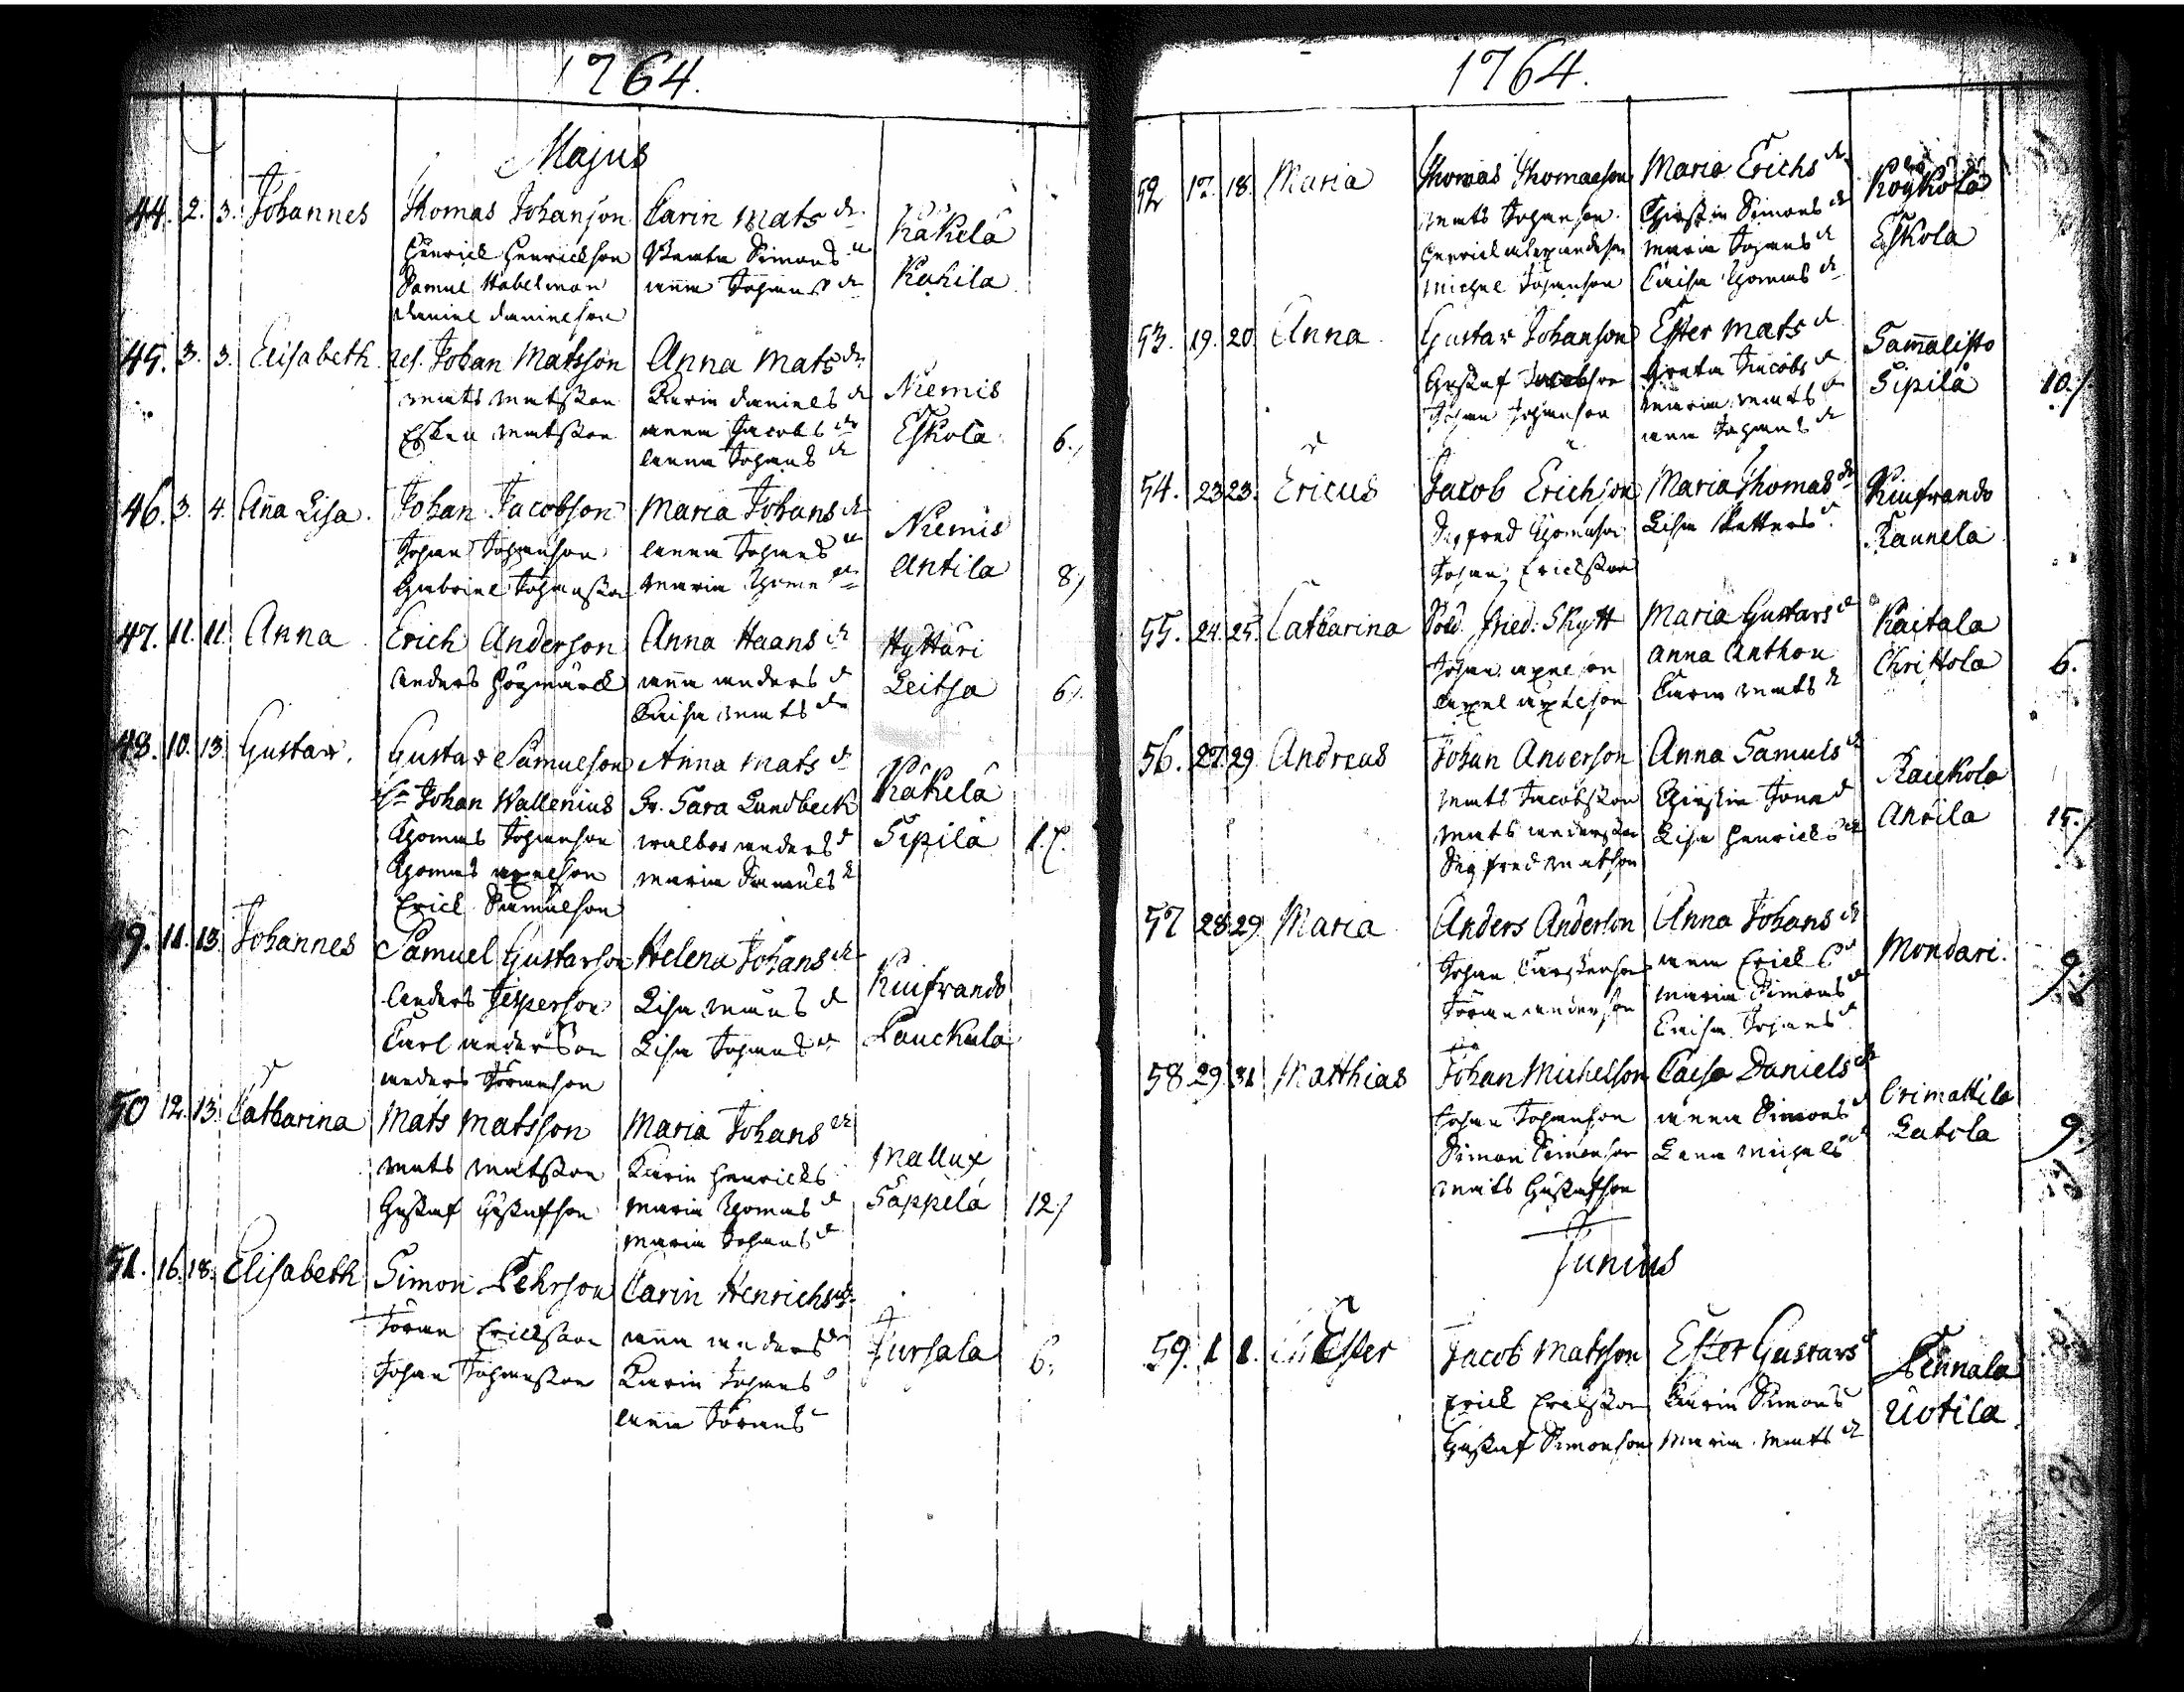 1764.
Majus
44. 2. 3. Johannes Thomas Johanson Carin Mats dr Käkelä
Henrick Henrickson Beata Simons dr Kakila
Samul Habelman Anna Johans dr
Daniel Danielson
45. 3. 3. Elisabeth Johan Matsson Anna Mats dr Niemis
Mats Matsson Karin Daniels dr Eskola 6.
Eskel Matsson Anna Jacobs dr
Anna Johans dr
46. 3. 4. Aña Lisa. Johan Jacobson Maria Johans dr Niemis
Johan Johanson Anna Johans dr Antila 8
Gabriel Johansson Maria Thoma dr
47. 11. 11. Anna Erich Anderson Anna Haans dr Hyttäri
Anders Högmarck Anna Anders d Leitsa 6.
Caisa Mats dr
48. 10. 13. Gustav. Gustav Samuelson Anna Mats d Käkelä
Hr Johan Wallenius Fr. Sara Lundbeck Sipilä
Thomas Johanson Walbor Anders d
Thomas Axelson Maria Samuels d
Erick Samuelson
49. 11. 13. Johannes Samuel Gustavson Helena Johans dr Kuifvando
Anders Jesperson Lisa Måns d Pauckula
Carl Anderson Lisa Johans dr
Anders Göranson
50 12. 13. Catharina Mats Matsson Maria Johans dr Mallux
Mats Matsson Karin Henricks Sappelä 12.
Gustaf Gustafson Maria Thomas d
Maria Johans d
51. 16. 18. Elisabeth Simon Pehrson Carin Henrichs dr Jursala 6.
Göran Ericksson Anna Anders dr
Johan Johansson Karin Johans d
Anna Görans d
1764.
52 17. 18. Maria Thomas Thomaeson Maria Erichs dr Köykölä
Mats Johanson Chirstin Simons dr Eskola
Henrick Alexanderson Maria Johans d
Michel Johanson Caisa Thomas d
53. 19. 20 Anna Gustav Johanson Ester Mats d Sam̃alisto
Gustaf Jacobson Greta Jacobs d Sipilä 10.
Johan Johanson Maria Mats dr
Anna Johans d
54. 23 23. Ericus Jacob Erichson Maria Thomas dr Kuifvando
Sigfred Thomason Lisa Petters d Raunela
Johan Ericksson
55. 24. 25. Catharina Sold. Fried: Skytt Maria Gustavs d Kaitala
Johan Axelson Anna Anthon Chrittola 6.
Axel Axelson Carin Mats d
56. 27. 29 Andreas Johan Anderson Anna Samuls d Raukola
Mats Jacobsson Chirstin Jona d Anrila 15.
Mats Andersson Lisa Henricks dr
Sigfred Matson
57 28 29. Maria Anders Anderson Anna Johans dr Mondari. 9.
Johan Carstenson Anna Erick d
Göran Anderson Maria Simons d
Caisa Johans d
58 29. 31 Matthias Johan Michelson Caisa Daniels dr Orimattila
Johan Johanson Anna Simons d Latola 9.
Simon Simonson Lena Michels d
Mats Gustafson
Junius
59. 1 1. Ester Jacob Matsson Ester Gustavs d Pennala
Erick Ericksson Karin Simons d Uotila
Gustaf Simonson Maria Mats d